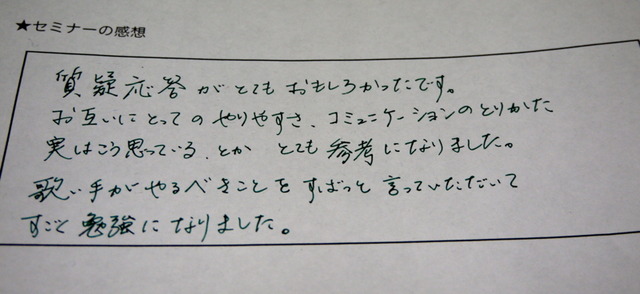 ★セミナーの感想
質疑応答がとてもおもしろかったです。
お互いにとってのやりやすさ、コミュニケーションのとりかた
実はこう思っている、とか とても参考になりました。
歌い手がやるべきことをずばっと言っていただいて
すごく勉強になりました。